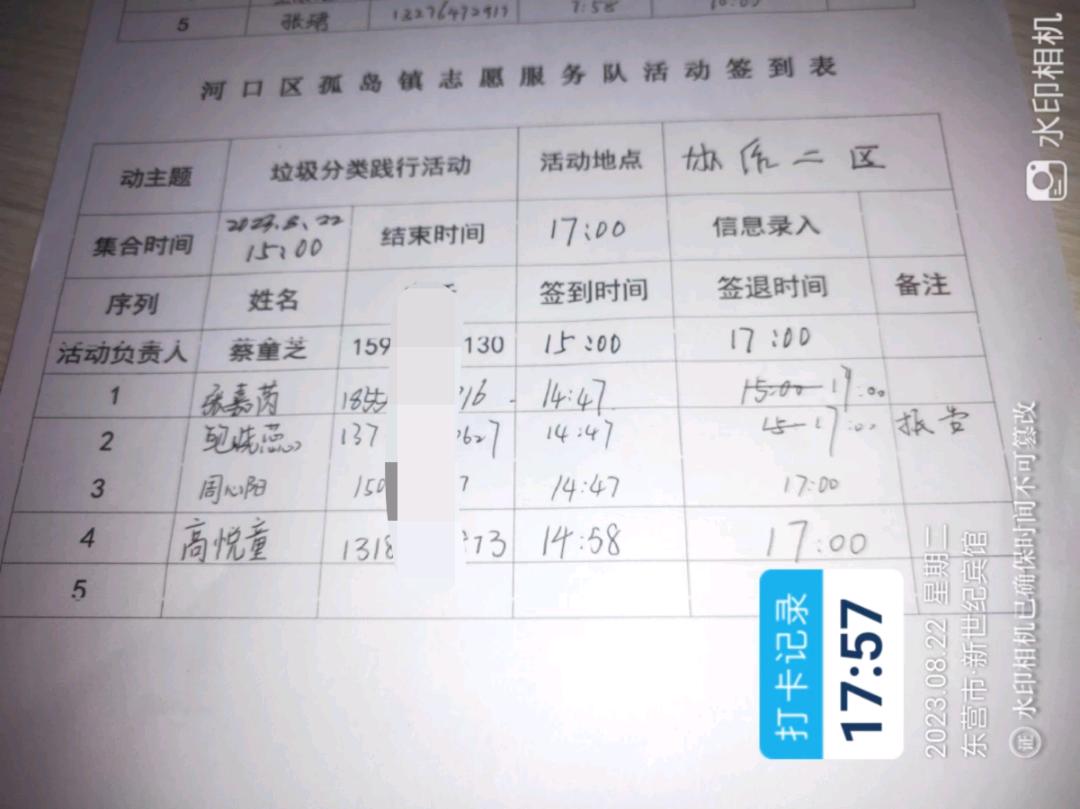 5 张珺 13276472917 7:58
河口区孤岛镇志愿服务队活动签到表
动主题 垃圾分类践行活动 活动地点 二区
集合时间 2023.8.22 15:00 结束时间 17:00 信息录入
序列 姓名 签到时间 签退时间 备注
活动负责人 蔡童芝 159 130 15:00 17:00
1 张嘉芮 1855 16 14:47 15:00 17:00
2 137 627 14:47 15 17:00 报告
3 周心阳 150 7 14:47 17:00
4 高悦童 1318 973 14:58 17:00
5
打卡记录
17:57
2023.08.22 星期二
东营市·新世纪宾馆
证 水印相机已确保时间不可篡改
水印相机